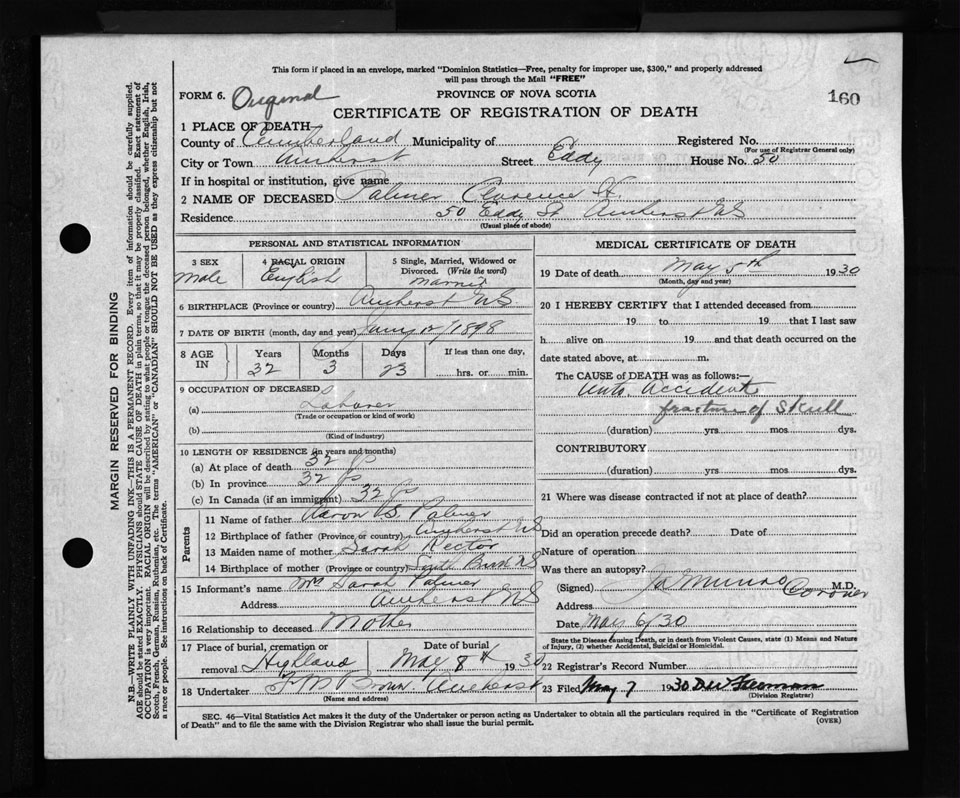 This form if placed in an envelope, marked "Dominion Statistics—Free, penalty for improper use, $300," and properly addressed
will pass through the Mail "FREE"
160
FORM 6. Original
PROVINCE OF NOVA SCOTIA
CERTIFICATE OF REGISTRATION OF DEATH
1 PLACE OF DEATH
County of Cumberland Municipality of Registered No.
(For use of Registrar General only)
City or Town Amherst Street Eddy House No. 50
If in hospital or institution, give name
2 NAME OF DECEASED Palmer Clarence H.
Residence 50 Eddy St. Amherst NS
(Usual place of abode)
PERSONAL AND STATISTICAL INFORMATION
3 SEX Male
4 RACIAL ORIGIN English
5 Single, Married, Widowed or
Divorced. (Write the word)
Married
6 BIRTHPLACE (Province or country) Amherst NS
7 DATE OF BIRTH (month, day and year) Jany 12/1898
8 AGE IN Years 32 Months 3 Days 23 If less than one day, hrs. or min.
9 OCCUPATION OF DECEASED
(a) Laborer
(Trade or occupation or kind of work)
(b)
(Kind of industry)
10 LENGTH OF RESIDENCE (in years and months)
(a) At place of death 32
(b) In province 32
(c) In Canada (if an immigrant) 32
Parents
11 Name of father Aaron S. Palmer
12 Birthplace of father (Province or country) Amherst NS
13 Maiden name of mother Sarah Rector
14 Birthplace of mother (Province or country) NS
15 Informant's name Mrs Sarah Palmer
Address Amherst NS
16 Relationship to deceased Mother
17 Place of burial, cremation or removal Highland Date of burial May 8th 1930
18 Undertaker F M Brown Amherst
(Name and address)
MEDICAL CERTIFICATE OF DEATH
19 Date of death May 5th 1930
(Month, day and year)
20 I HEREBY CERTIFY that I attended deceased from
19 to 19 that I last saw
h alive on 19 and that death occurred on the
date stated above, at m.
The CAUSE of DEATH was as follows:—
Auto Accident
fracture of Skull
(duration) yrs mos dys.
CONTRIBUTORY
(duration) yrs mos dys.
21 Where was disease contracted if not at place of death?
Did an operation precede death? Date of
Nature of operation
Was there an autopsy?
(Signed) Munro M.D.
Coroner
Address
Date May 6/30
State the Disease causing Death, or in death from Violent Causes, state (1) Means and Nature
of Injury, (2) whether Accidental, Suicidal or Homicidal.
22 Registrar's Record Number
23 Filed May 7 1930
(Division Registrar)
SEC. 46—Vital Statistics Act makes it the duty of the Undertaker or person acting as Undertaker to obtain all the particulars required in the "Certificate of Registration
of Death" and to file the same with the Division Registrar who shall issue the burial permit.
(OVER)
MARGIN RESERVED FOR BINDING
N.B.—WRITE PLAINLY WITH UNFADING INK—THIS IS A PERMANENT RECORD. Every item of information should be carefully supplied.
AGE should be stated EXACTLY. PHYSICIANS should STATE CAUSE OF DEATH in plain terms, so that it may be properly classified. Exact statement of
OCCUPATION is very important. RACIAL ORIGIN will be described by stating to what people or tongue the deceased person belonged, whether English, Irish,
Scotch, French, German, Russian, Ruthenian, etc. The terms "AMERICAN" or "CANADIAN" SHOULD NOT BE USED as they express citizenship but not
a race or people. See instructions on back of Certificate.